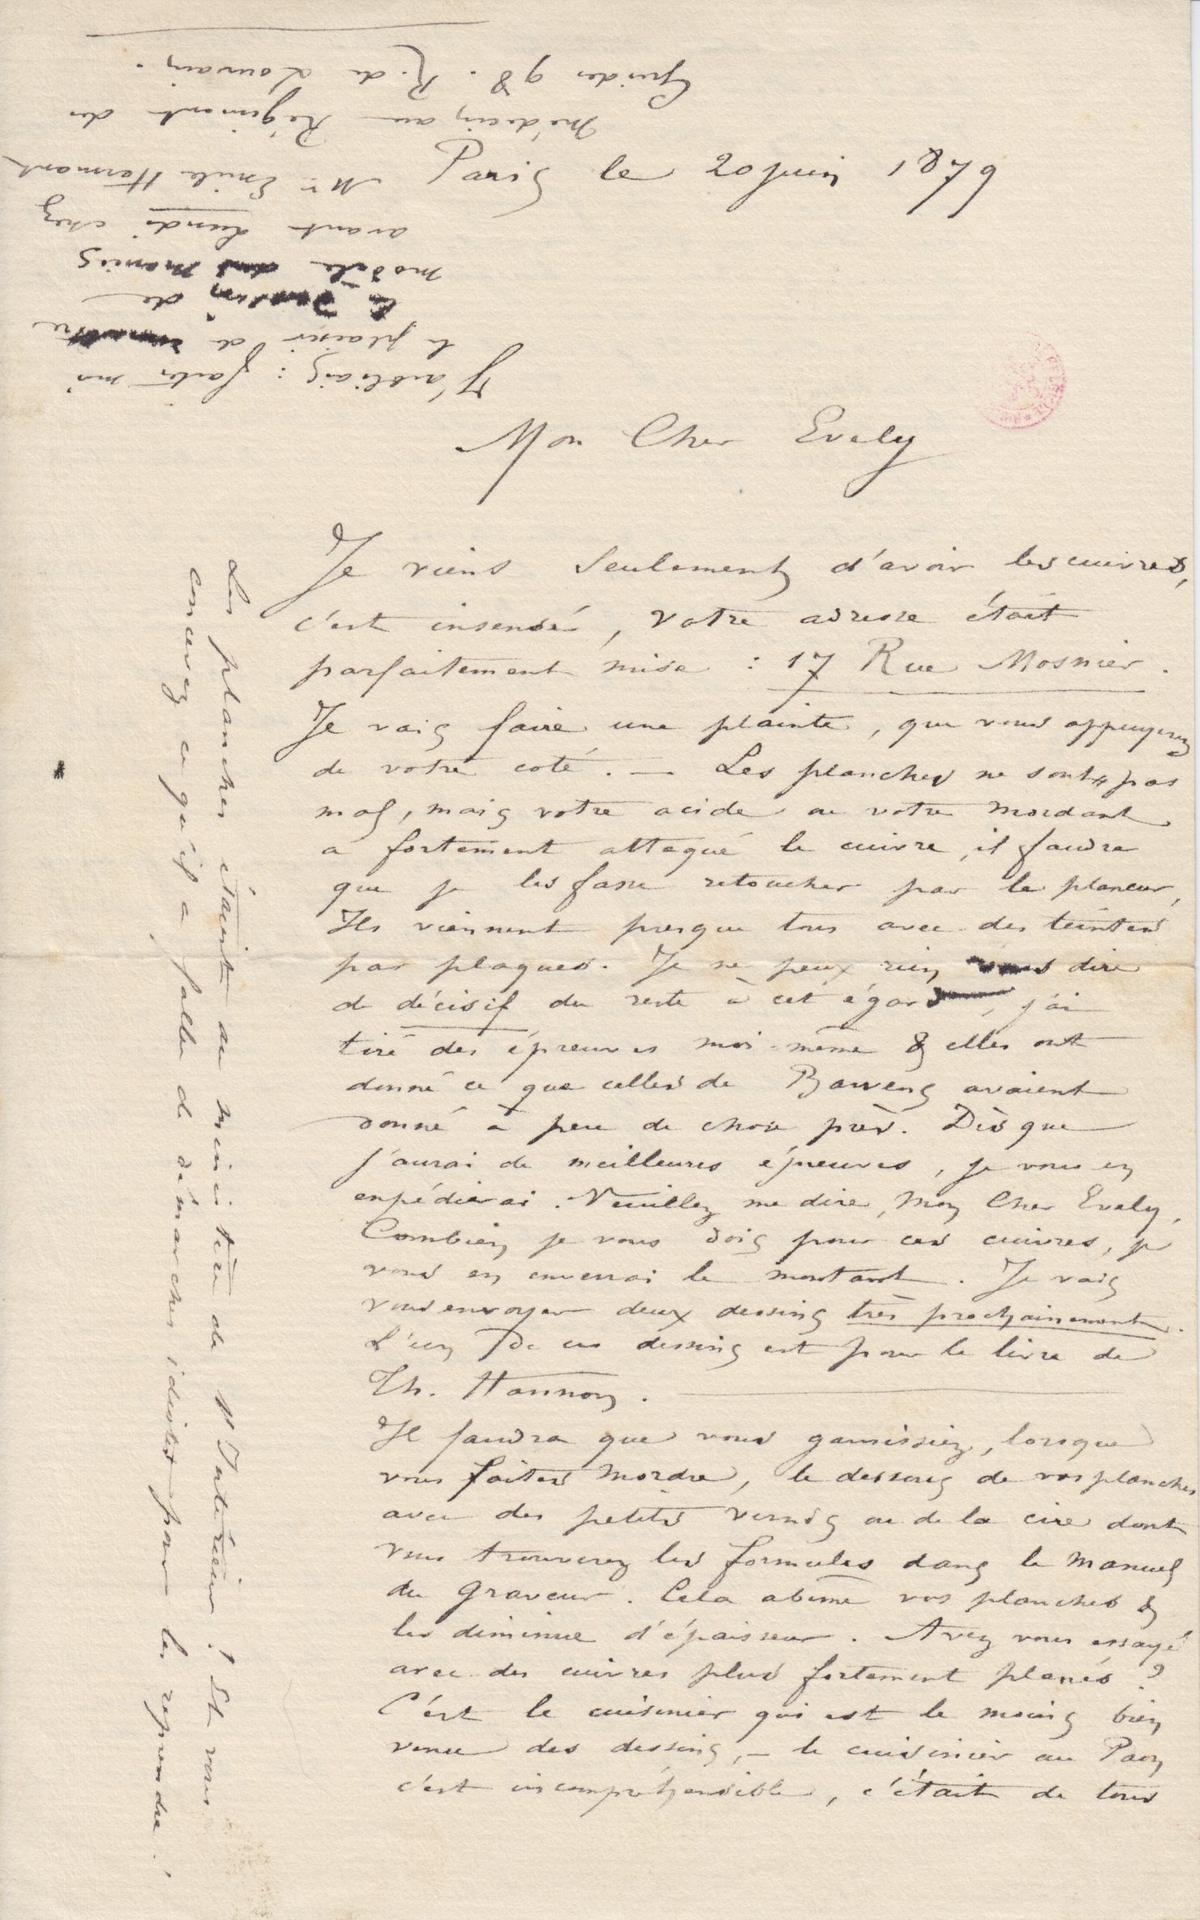 Paris le 20 juin 1879
Mon Cher Evely
Je viens seulement d'avoir les cuivres,
c'est insensé, votre adresse était
parfaitement mise : 17 Rue Mosnier.
Je vais faire une plainte, que vous appuyerez
de votre coté. — Les planches ne sont pas
mal, mais votre acide ou votre mordant
a fortement attaqué le cuivre, il faudra
que je les fasse retoucher par le planeur,
Ils viennent presque tous avec des teintes
par plaques. Je ne peux rien vous dire
de décisif du reste à cet égard, j'ai
tiré des épreuves moi-même & elles ont
donné ce que celles de Bauwens avaient
donné à peu de chose près. Dès que
j'aurai de meilleures épreuves, je vous en
expédierai. Veuillez me dire, Mon Cher Evely,
Combien je vous dois pour ces cuivres, je
vous en enverrai le montant. Je vais
vous envoyer deux dessins très prochainement.
L'un de ces dessins est pour le livre de
Th. Hannon. —
Il faudra que vous garnissiez, lorsque
vous faites mordre, le dessous de vos planches
avec des petits vernis ou de la cire dont
vous trouverez les formules dans le Manuel
du Graveur. Cela abime vos planches &
les diminue d'épaisseur. Avez vous essayé
avec des cuivres plus fortement planés ?
C'est le cuisinier qui est le moins bien
venu des dessins, — le cuisinier au Paon
c'est incompréhensible, c'était de tous
Les planches étaient au ministère de l'Intérieur ! Et vous
concevez ce qu'il a fallu de démarches idiotes pour les reprendre !
J'oubliais : faites moi
le plaisir de remettre
le dessin de
modèle Mariès
avant Lundi chez
Mr Emile Hermant
médecin au Régiment des
Guides 98. R. de Louvain.